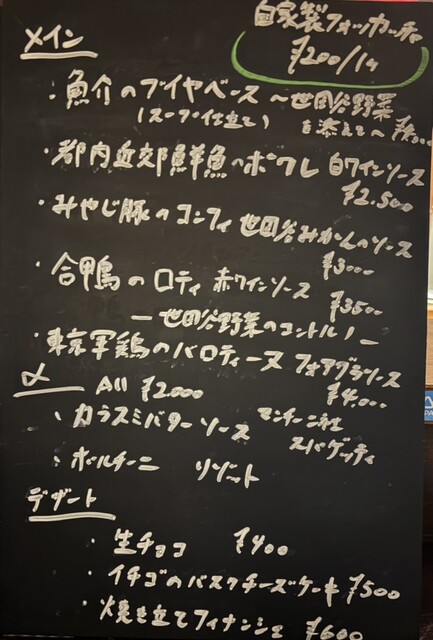 自家製フォッカッチャ
¥200/1ヶ
メイン
・魚介のブイヤベース 〜世田谷野菜
(スープ仕立て) を添えて〜 ¥4,000
・都内近郊鮮魚のポワレ 白ワインソース
¥2,500
・みやじ豚のコンフィ 世田谷みかんのソース
¥3000
・合鴨のロティ 赤ワインソース
¥3500
ー世田谷野菜のコントルノー
・東京軍鶏のバロティーヌ フォアグラソース
¥4,000
〆 All ¥2000
・カラスミバターソース マンチーニ社
スパゲッティ
・ポルチーニ リゾット
デザート
・生チョコ ¥400
・イチゴのバスクチーズケーキ ¥500
・焼き立てフィナンシェ ¥600